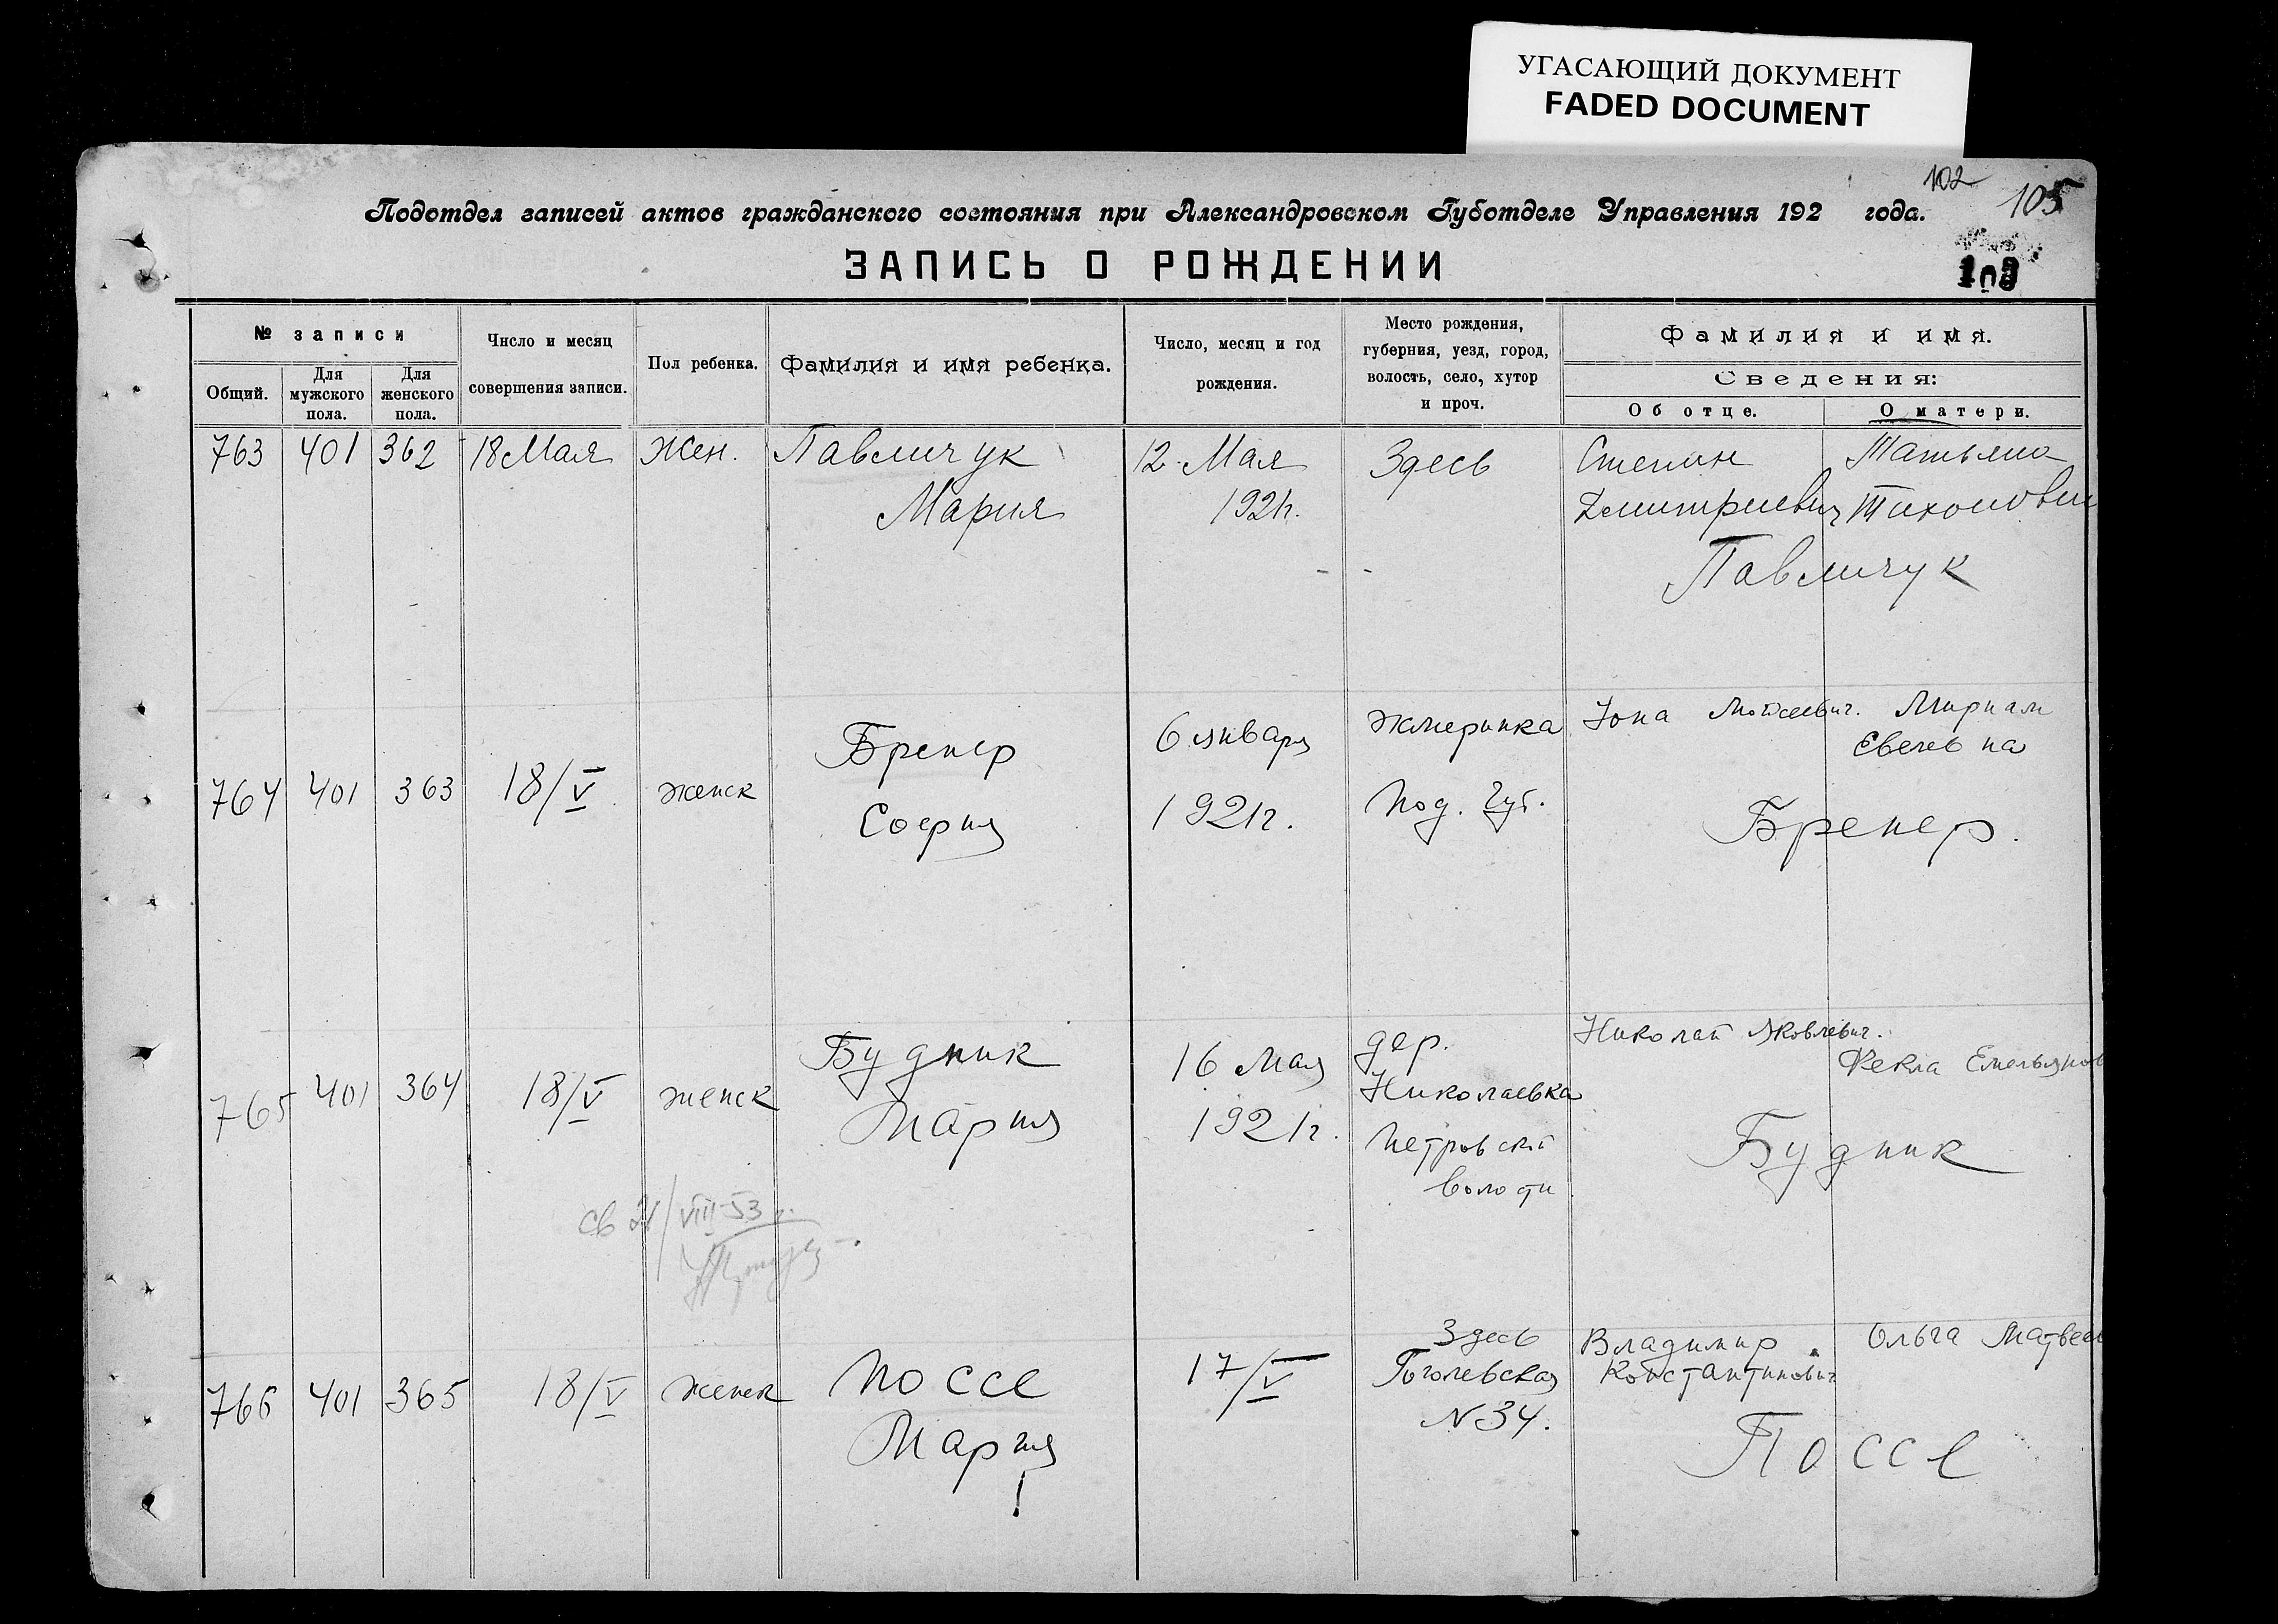 УГАСАЮЩИЙ ДОКУМЕНТ
FADED DOCUMENT
102
105
Подотдел записей актов гражданского состояния при Александровском Губотделе Управления 192 года.
ЗАПИСЬ О РОЖДЕНИИ
103
№ записи
Общий.
Для мужского пола.
Для женского пола.
Число и месяц совершения записи.
Пол ребенка.
Фамилия и имя ребенка.
Число, месяц и год рождения.
Место рождения, губерния, уезд, город, волость, село, хутор и проч.
Фамилия и имя.
Сведения:
Об отце.
О матери.
763 401 362 18 Мая Жен. Павличук 12 Мая Здесь Степан Татьяна
Мария 1921г. Дмитриевич Тихонови
Павличук
6 января Жмеринка Иона Мойсеевич. Мириам
Бренер Евелевна
764 401 363 18/V женск Под. Губ.
София 1921г. Бренер.
Николай Яковлевич.
Будник 16 мая дер. Фекла Емельянов
765 401 364 18/V женск Николаевка
Мария 1921г. Петровской Будник
волости
св 21/VIII-53 г.
Здесь Владимир Ольга Матвее
766 401 365 18/V женск Поссе 17/V Гоголевская Константинович
Мария N 34. Поссе